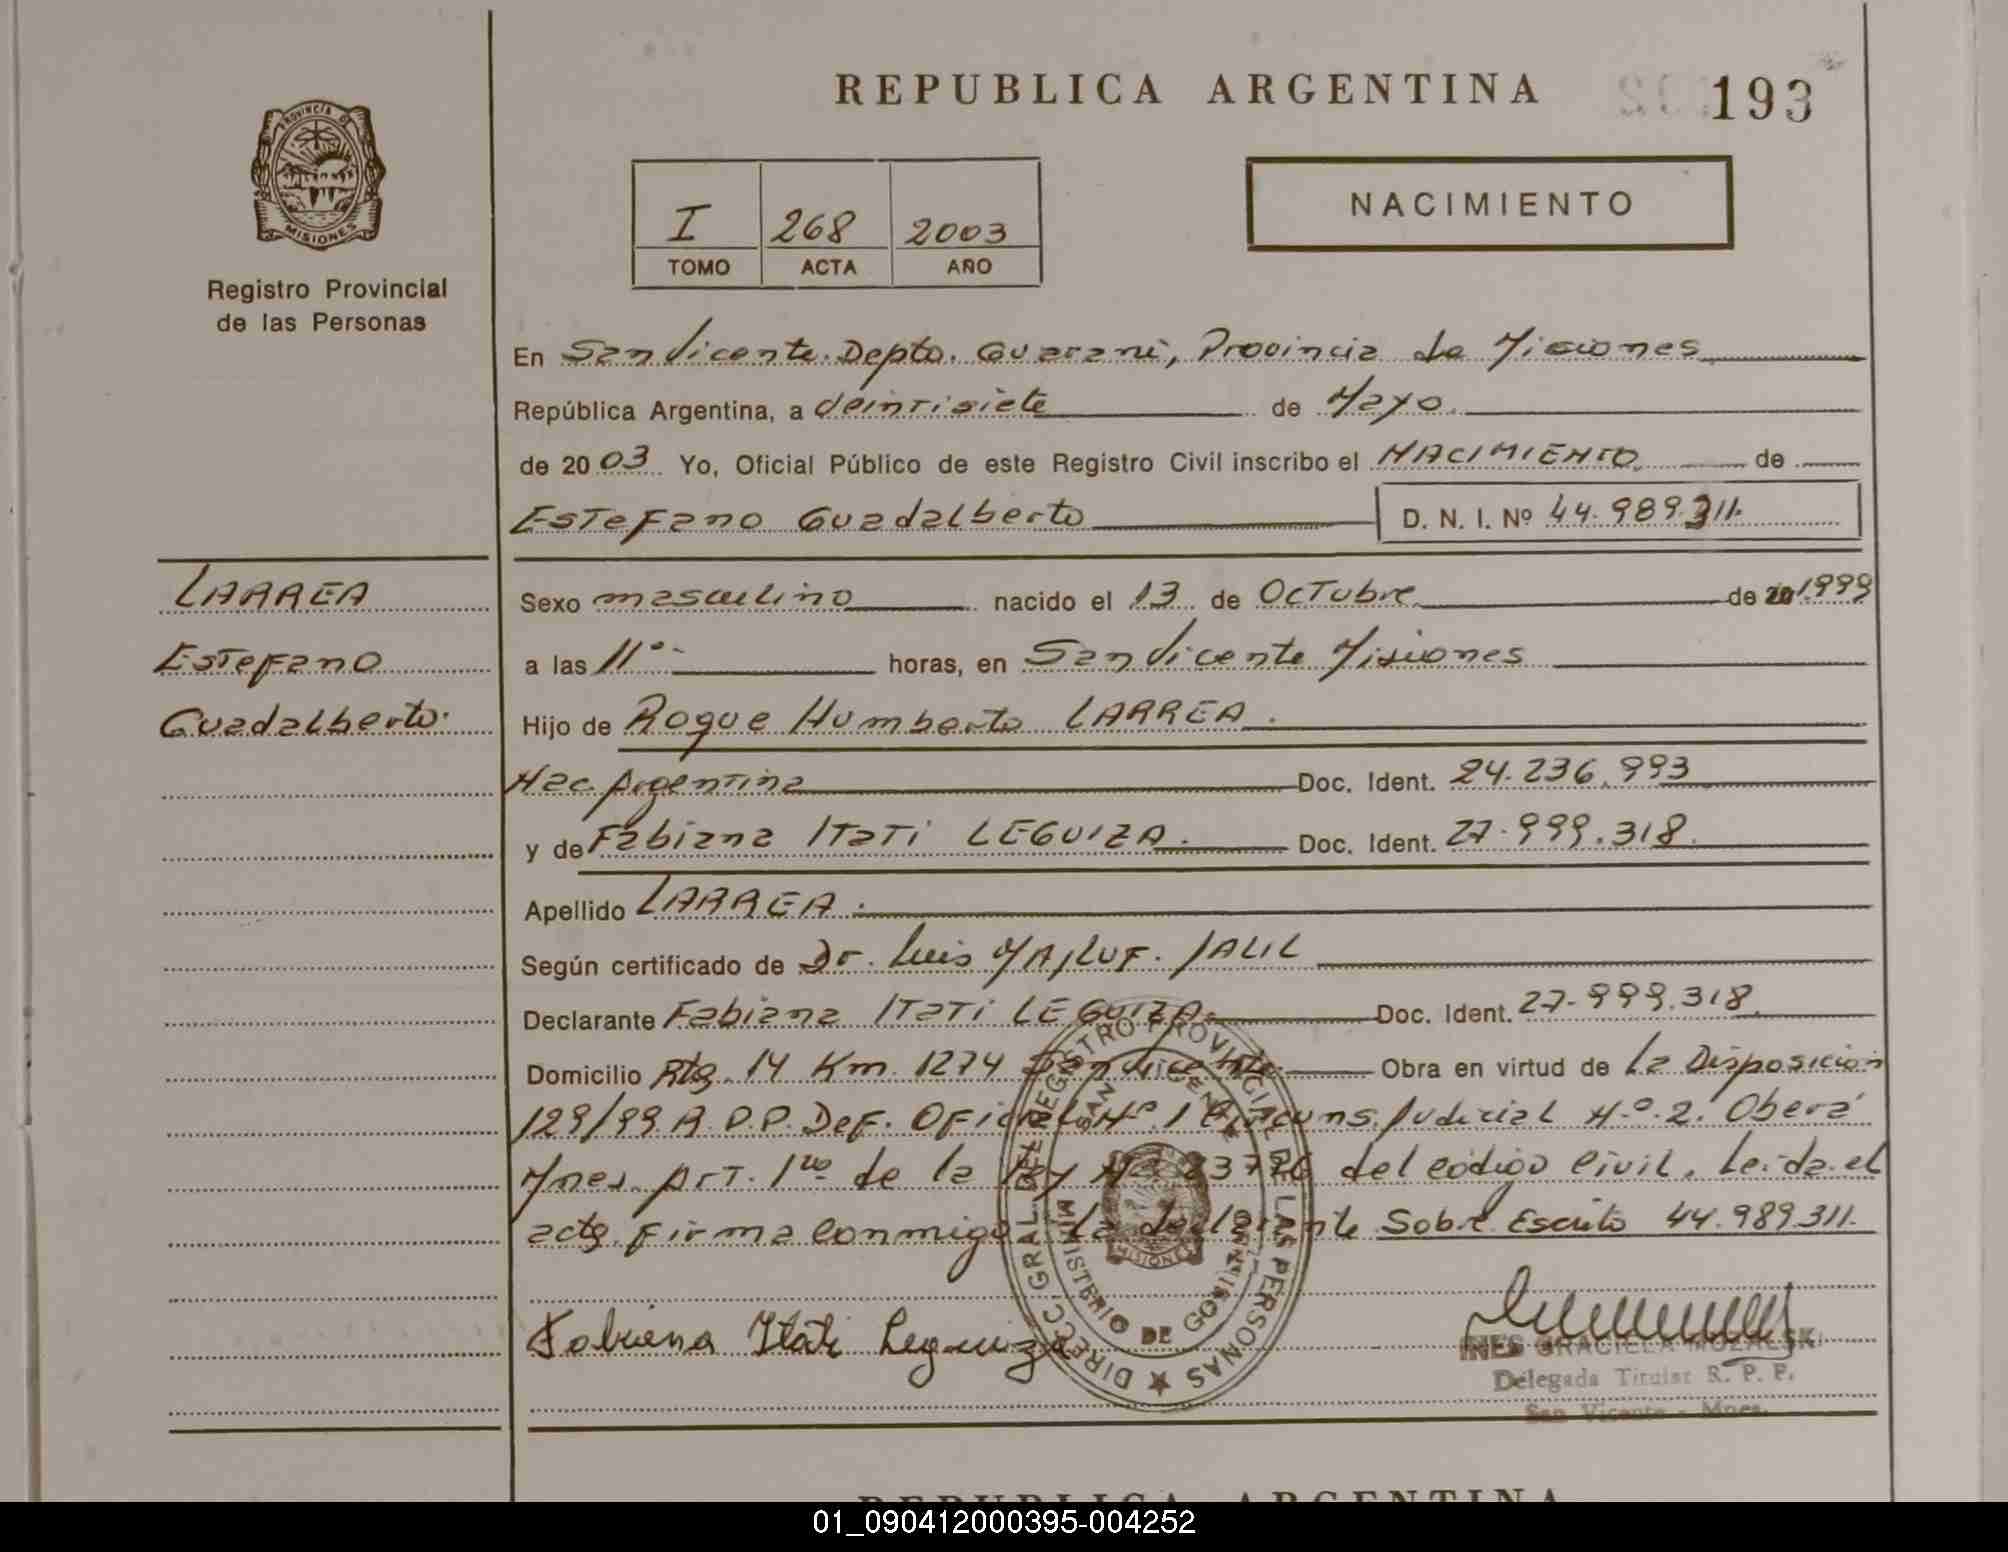 REPUBLICA ARGENTINA 193
PROVINCIA DE
MISIONES
Registro Provincial
de las Personas
NACIMIENTO
I 268 2003
TOMO ACTA AÑO
En San Vicente. Depto. Guaraní, Provincia de Misiones
República Argentina, a veintisiete de Mayo.
de 2003 Yo, Oficial Público de este Registro Civil inscribo el NACIMIENTO de
Estefano Guadalberto D. N. I. Nº 44.989.311.
LARREA
Estefano
Guadalberto.
Sexo masculino nacido el 13 de Octubre de 20 1999
a las 11º horas, en San Vicente Misiones
Hijo de Roque Humberto LARREA.
Nac Argentina Doc. Ident. 24.236.993
y de Fabiana Itati LEGUIZA. Doc. Ident. 27.999.318.
Apellido LARREA.
Según certificado de Dr. Luis JALIL
Declarante Fabiana Itati LEGUIZA. Doc. Ident. 27.999.318.
Domicilio Rta. 14 Km 1274 San Vicente Obra en virtud de la Disposición
129/99 A P.P. Def. Oficial Nº 1 Circuns. Judicial Nº 2. Oberá
Mnes. Art. 1ro de la ley del código Civil. Leida el
acta firma conmigo la declarante Sobre Escrito 44.989.311.
DIRECC. GRAL. DEL REGISTRO PROVINCIAL DE LAS PERSONAS
SAN VICENTE
MINISTERIO DE GOBIERNO
MISIONES
Fabiana Itati Leguiza
INES GRACIELA MUZALSKI
Delegada Titular R. P. P.
San Vicente - Mnes.
REPUBLICA ARGENTINA
01_090412000395-004252